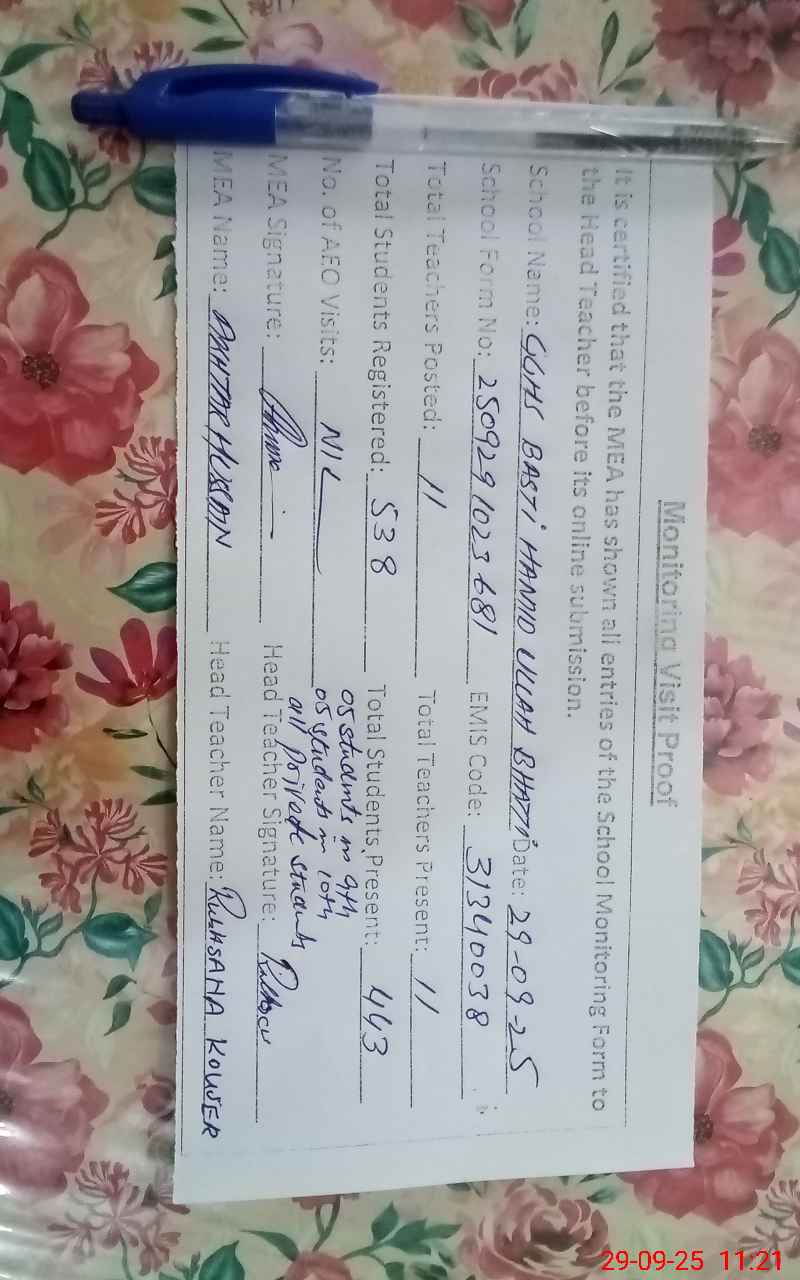 Monitoring Visit Proof
It is certified that the MEA has shown all entries of the School Monitoring Form to
the Head Teacher before its online submission.
School Name: GGHS BASTI HAMID ULLAH BHATTI Date: 29-09-25
School Form No: 2509291023681 EMIS Code: 31340038
Total Teachers Posted: 11 Total Teachers Present: 11
Total Students Registered: 538 Total Students Present: 443
No. of AEO Visits: NIL 05 students in 9th
05 students in 10th
all private students
MEA Signature: Head Teacher Signature:
MEA Name: HUSSAIN Head Teacher Name: RUKHSANA KOUSER
29-09-25 11:21